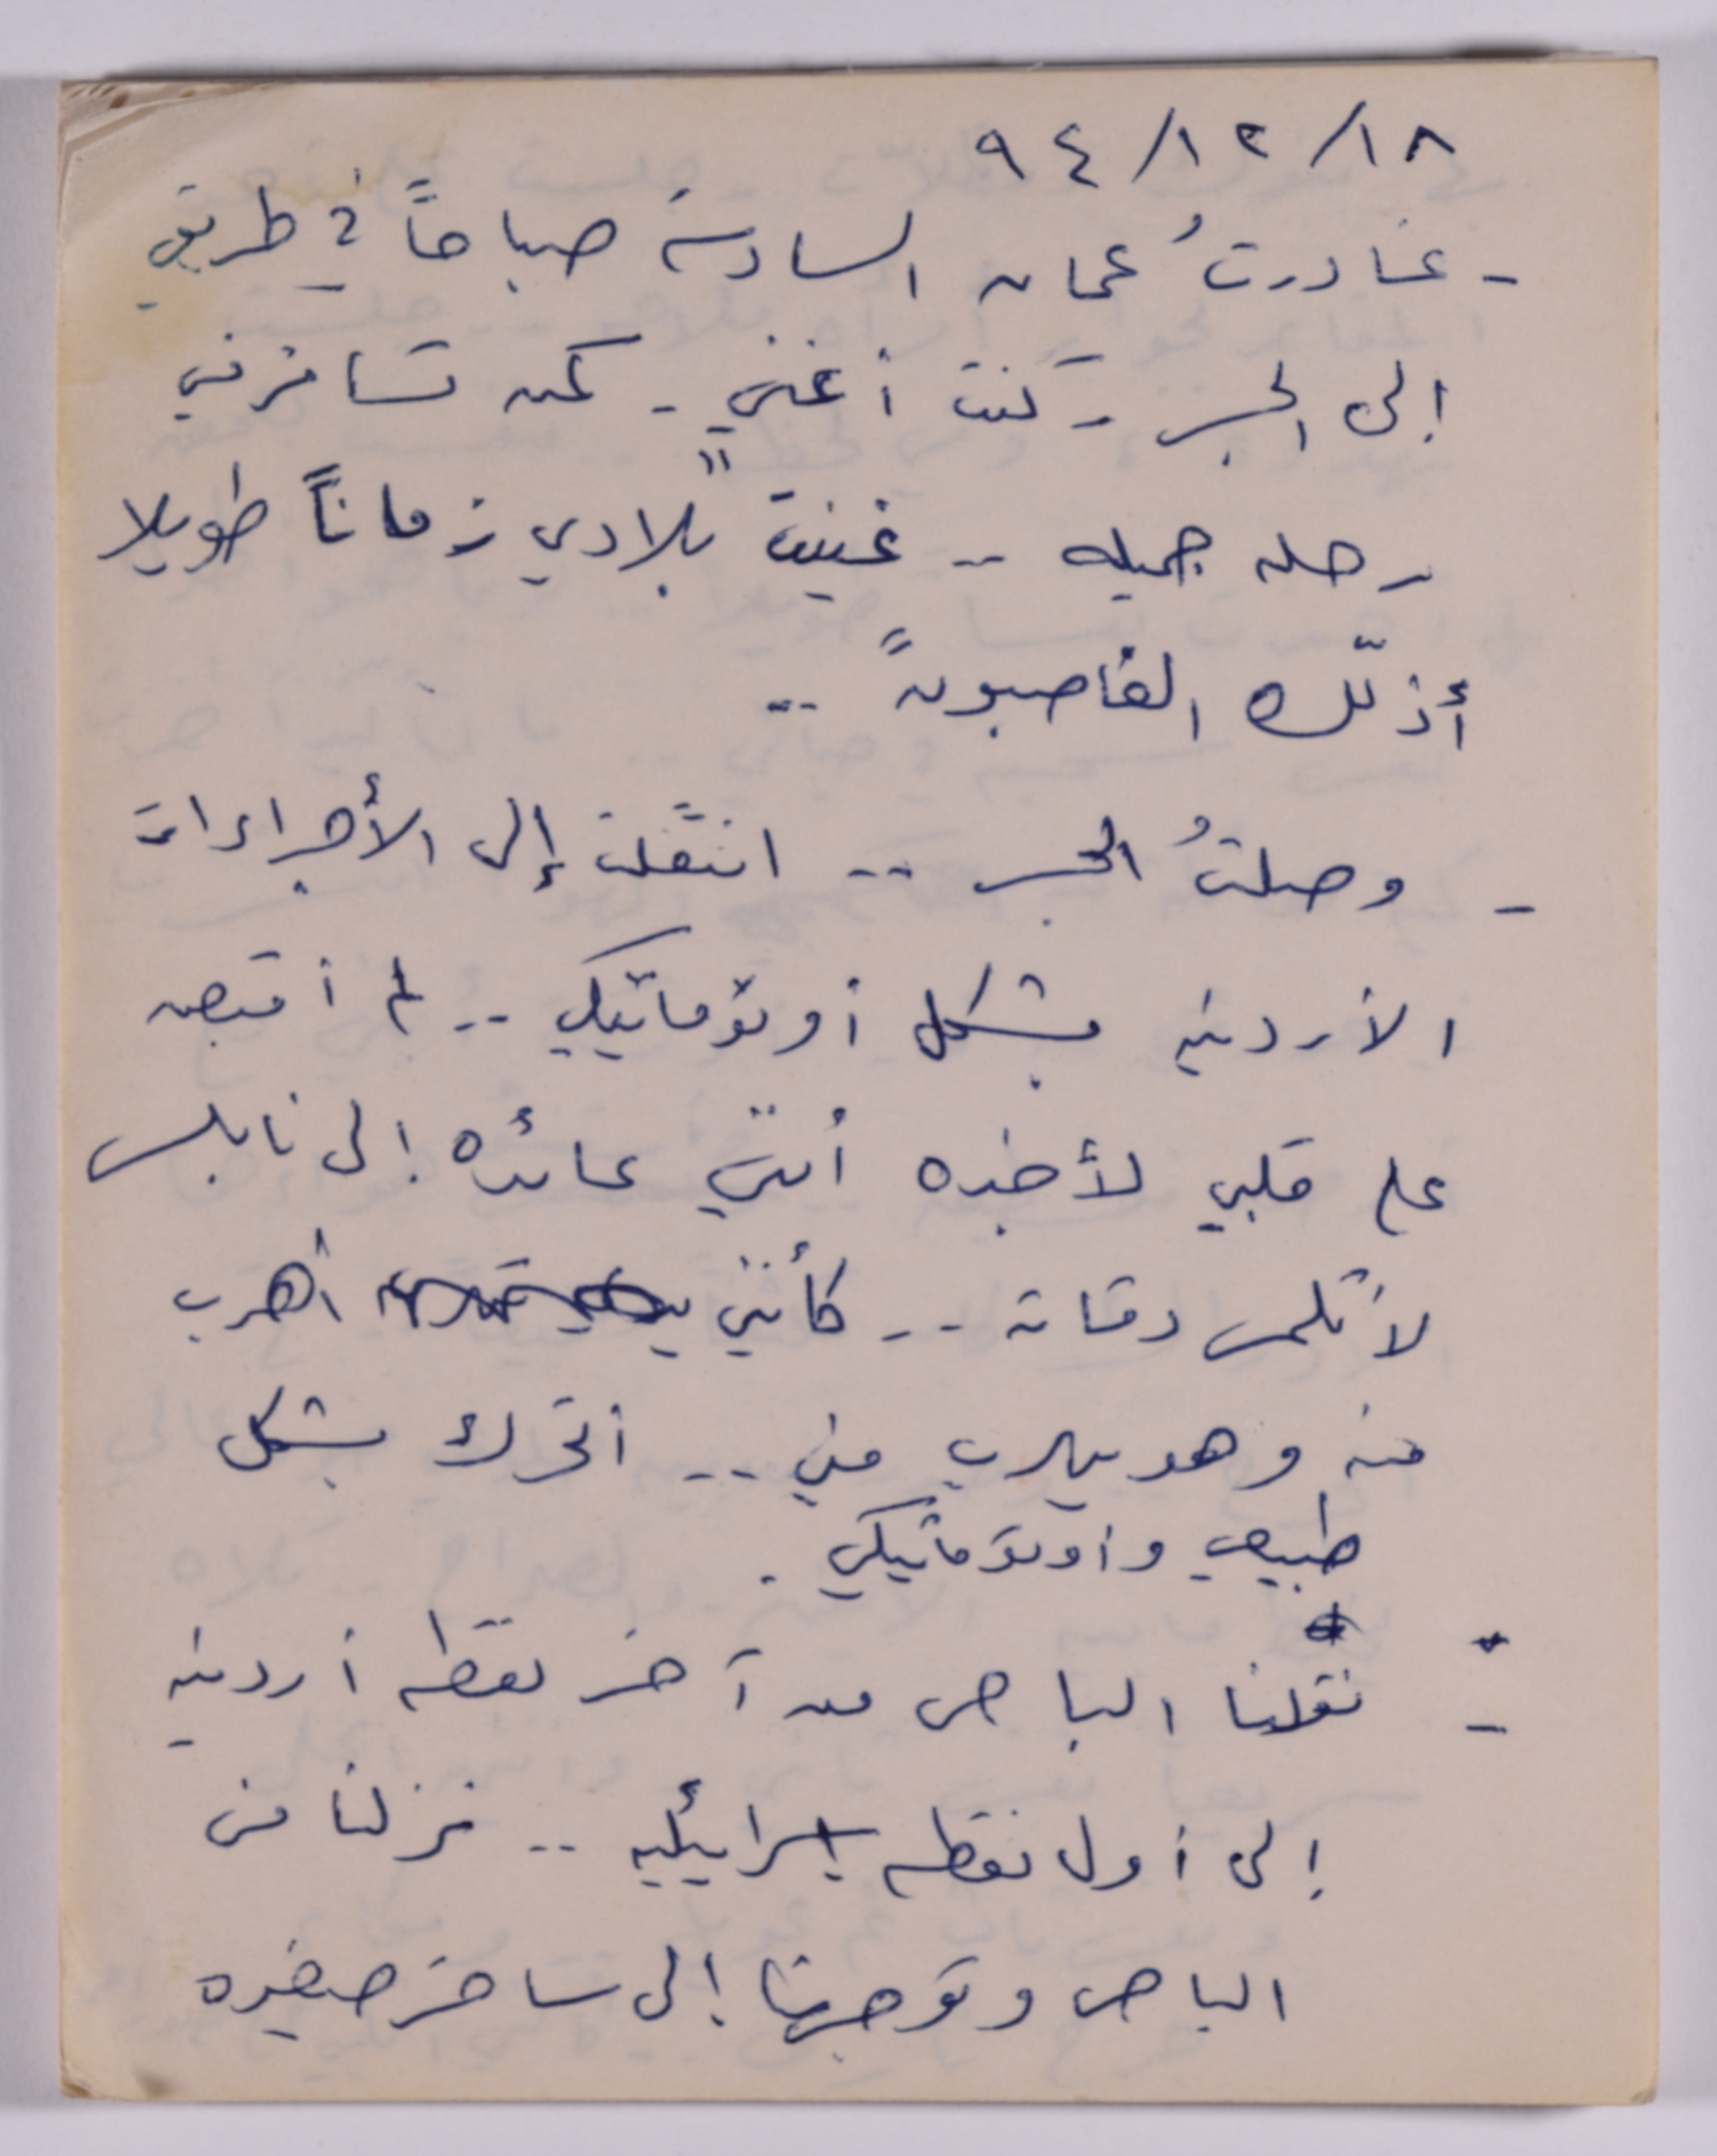 ٩٤/١٢/١٨
- غادرتُ عمان السادسة صباحاً في طريقي
إلى الجسر - كنت أغني - كمن تسافر في
رحله جميله .. غنيت "بلادي زماناً طويلا
أذلّك الغاصبون" ..
- وصلتُ الجسر .. انتقلت إلى الأجراءات
الأردنيه بشكل أوتوماتيكي .. لم أقبض
على قلبي لأخبره أنني عائده إلى نابلس
لأتلمس دقاته .. كأنني أهرب
منه وهو يهرب مني .. أتحرك بشكل
طبيعي وأوتوماتيكي .
- نقلنا الباص من آخر نقطه أردنيه
إلى أول نقطه إسرائيليه .. نزلنا من
الباص وتوجهنا إلى ساحة صغيره